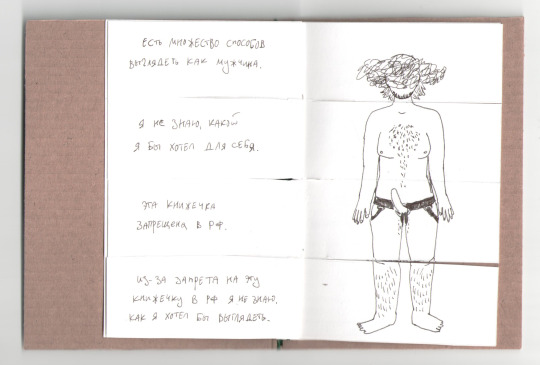 ЕСТЬ МНОЖЕСТВО СПОСОБОВ
ВЫГЛЯДЕТЬ КАК МУЖЧИНА.
Я НЕ ЗНАЮ, КАКОЙ
Я БЫ ХОТЕЛ ДЛЯ СЕБЯ.
ЭТА КНИЖЕЧКА
ЗАПРЕЩЕНА В РФ.
ИЗ-ЗА ЗАПРЕТА НА ЭТУ
КНИЖЕЧКУ В РФ Я НЕ ЗНАЮ,
КАК Я ХОТЕЛ БЫ ВЫГЛЯДЕТЬ.